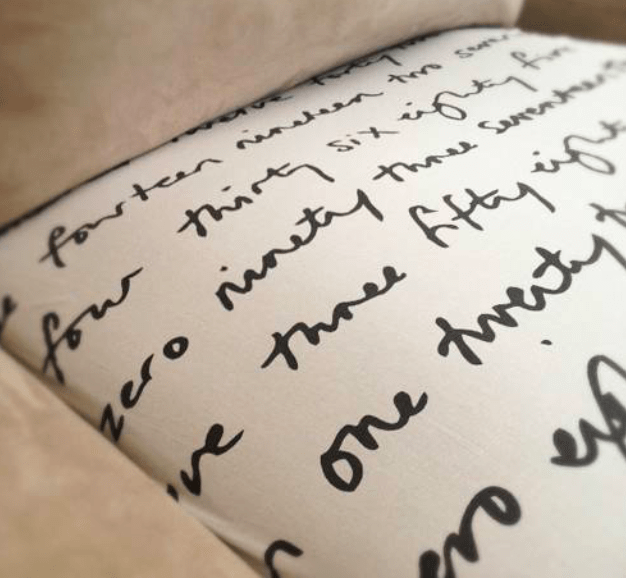 forty
fourteen nineteen two seven
four thirty six eighty five
zero ninety three seventeen
ve three fifty eight
one twenty
ero